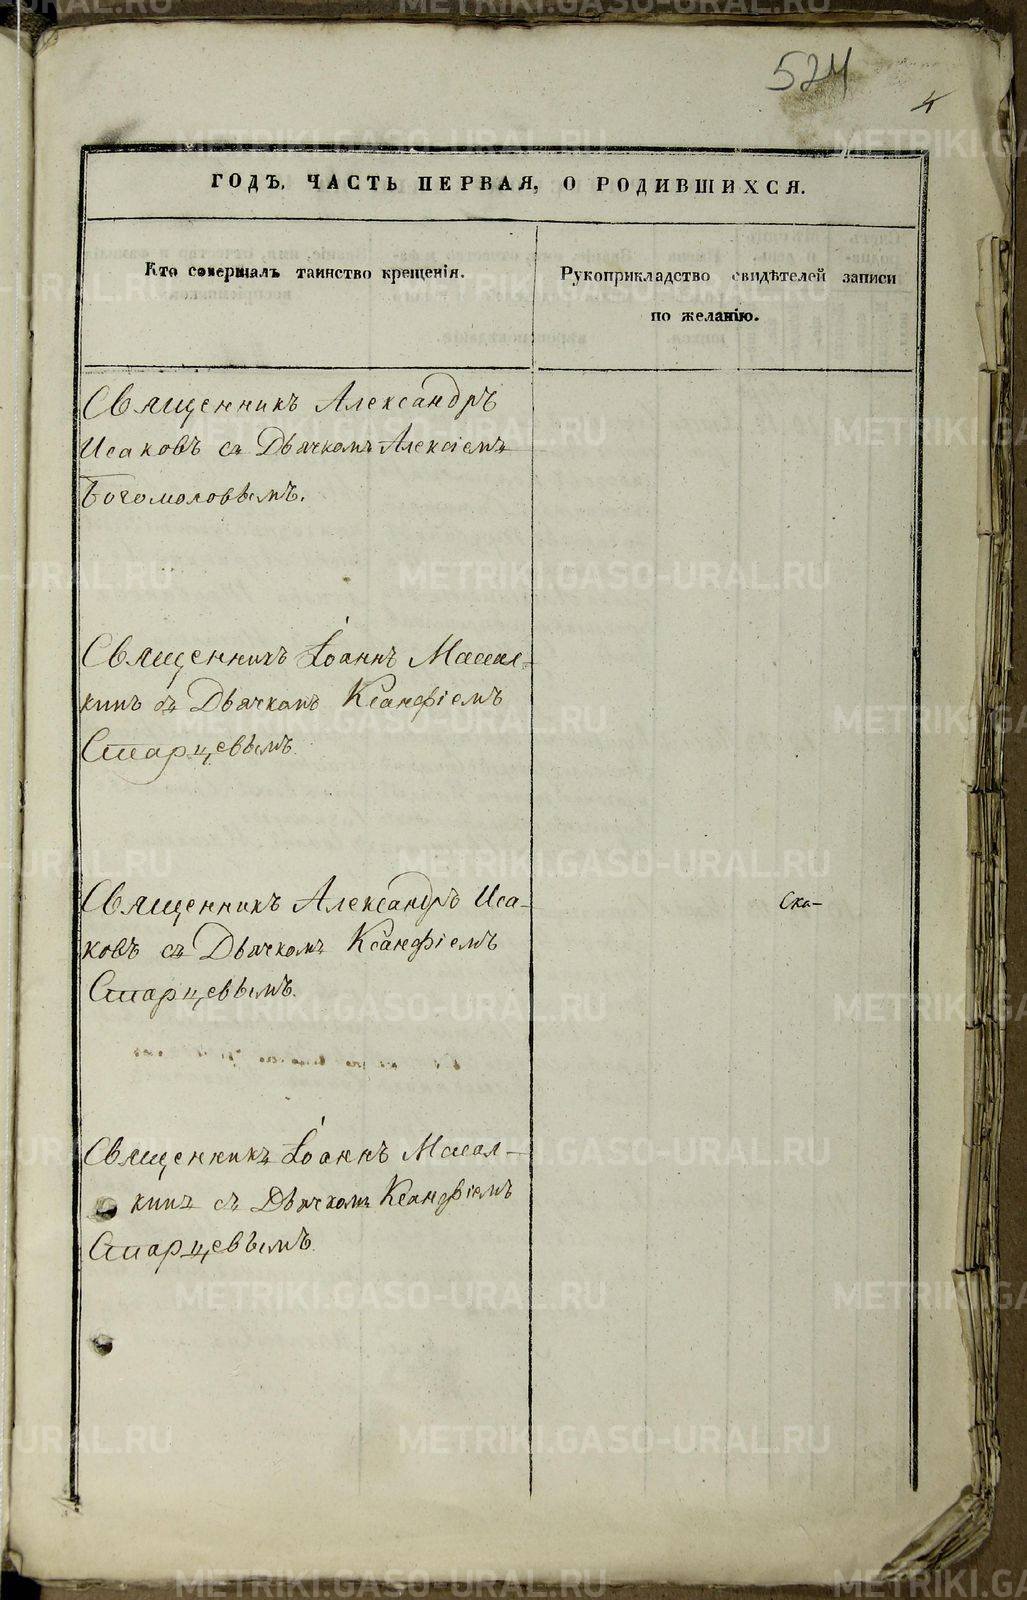 524
4
ГОДЪ, ЧАСТЬ ПЕРВАЯ, О РОДИВШИХСЯ.
Кто совершалъ таинство крещенія.
Рукоприкладство свидѣтелей записи
по желанію.
Священникъ Александръ
Исаковъ съ Дьячкомъ Алексіемъ
Богомоловымъ.
Священникъ Іоаннъ Масал-
кинъ съ Дьячкомъ Ксанфіемъ
Старцевымъ.
Священникъ Александръ Иса-
ковъ съ Дьячкомъ Ксанфіемъ
Старцевымъ.
Ска-
Священникъ Іоаннъ Масал-
кинъ съ Дьячкомъ Ксанфіемъ
Старцевымъ.
METRIKI.GASO-URAL.RU